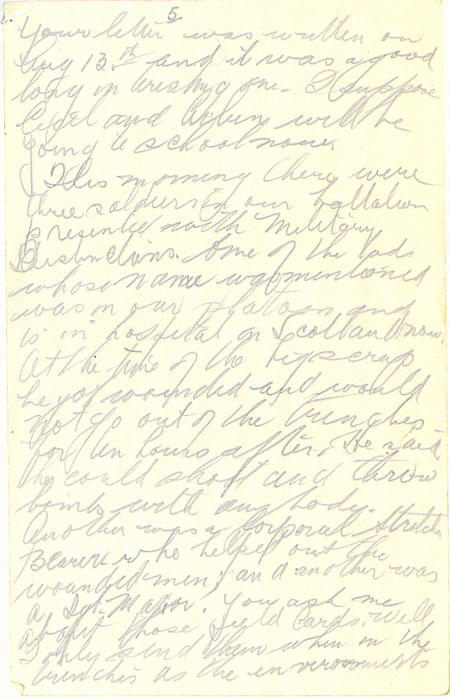 5.
Your letter was written on
Aug 13th and it was a good
long interesting one. I suppose
Cecil and will be
going to school now.
This morning there were
three soldiers in our battalion
presented with Military
Distinctions. One of the lads
whose name was mentioned
was in our platoon and
is in hospital in Scotland now.
At the time of the big scrap
he got wounded and would
not go out of the trenches
for ten hours after. He said
he could shoot and throw
bombs with any body.
Another was a Corporal Stretcher
Bearer who helped out the
wounded men, and another was
a Sgt. Major. You ask me
about those Field Cards. Well
I only send them when in the
trenches as the environments